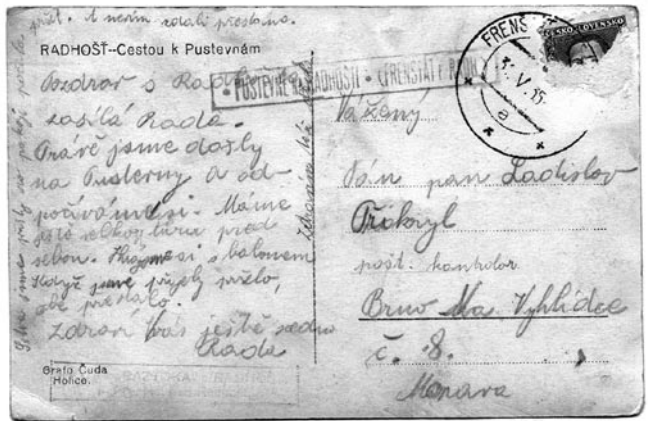 přšt. A nevím zdali přestane.
RADHOŠŤ--Cestou k Pustevnám
Pozdrav s Radhoště
zasílá Rada.
Právě jsme došly
na Pustevny a od-
počíváme si. Máme
ještě velkou túru před
sebou. Hrajeme si s balonem
Když jsme přijely pršelo,
ale přestalo.
Zdraví Vás ještě jednou
Rada
Grafo Čuda
Holice.
PUSTEVNE NA RADHOŠTI • (FRENŠTÁT P. RADH.)
FRENŠ
V. 35
a
ČESKOSLOVENSKO
Vážený
Pán pan Ladislav
Přikryl
pošt. kontrolor
Brno Na Vyhlídce
č. 8.
Morava